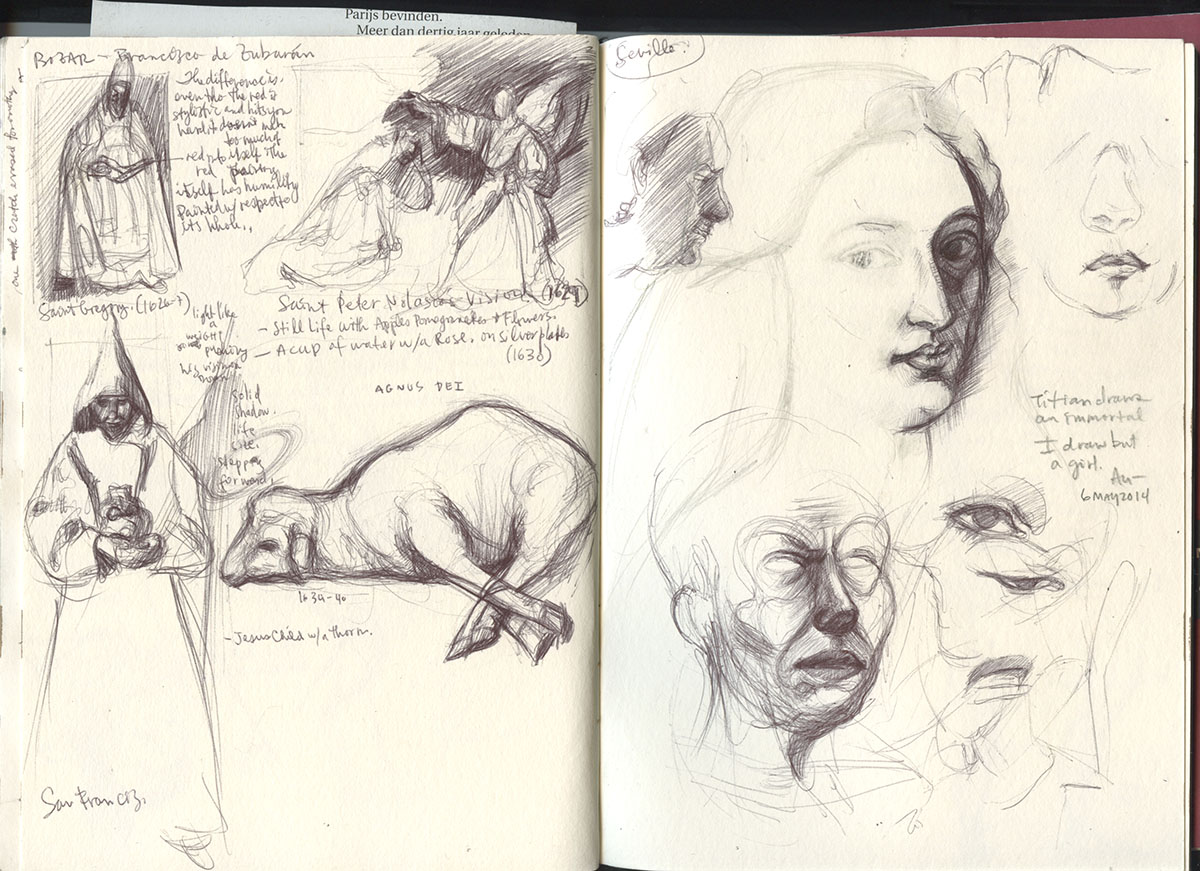 Parijs bevinden.
Meer dan dertig jaar geleden
BOZAR – Francizco de Zubarán
The difference is,
even tho the red is
stylistic and hits you
hard it doesn't
too much of
red itself. The
red
itself has humility
painted w/ respect to
its whole..
Saint Gregory. (1626-7)
Saint Peter Nolasco's Vision. (1629)
– Still Life with Apples Pomegranates & Flowers.
– A cup of water w/a Rose, on silver plates
(1630)
light like
a
weight
pushing
AGNUS DEI
solid
shadow.
life
size.
stepping
forward.
1634-40
– Jesus Child w/a thorn.
San Franciz.
Sevilla.
Titian draws
an immortal
I draw but
a girl.
6 MAY 2014